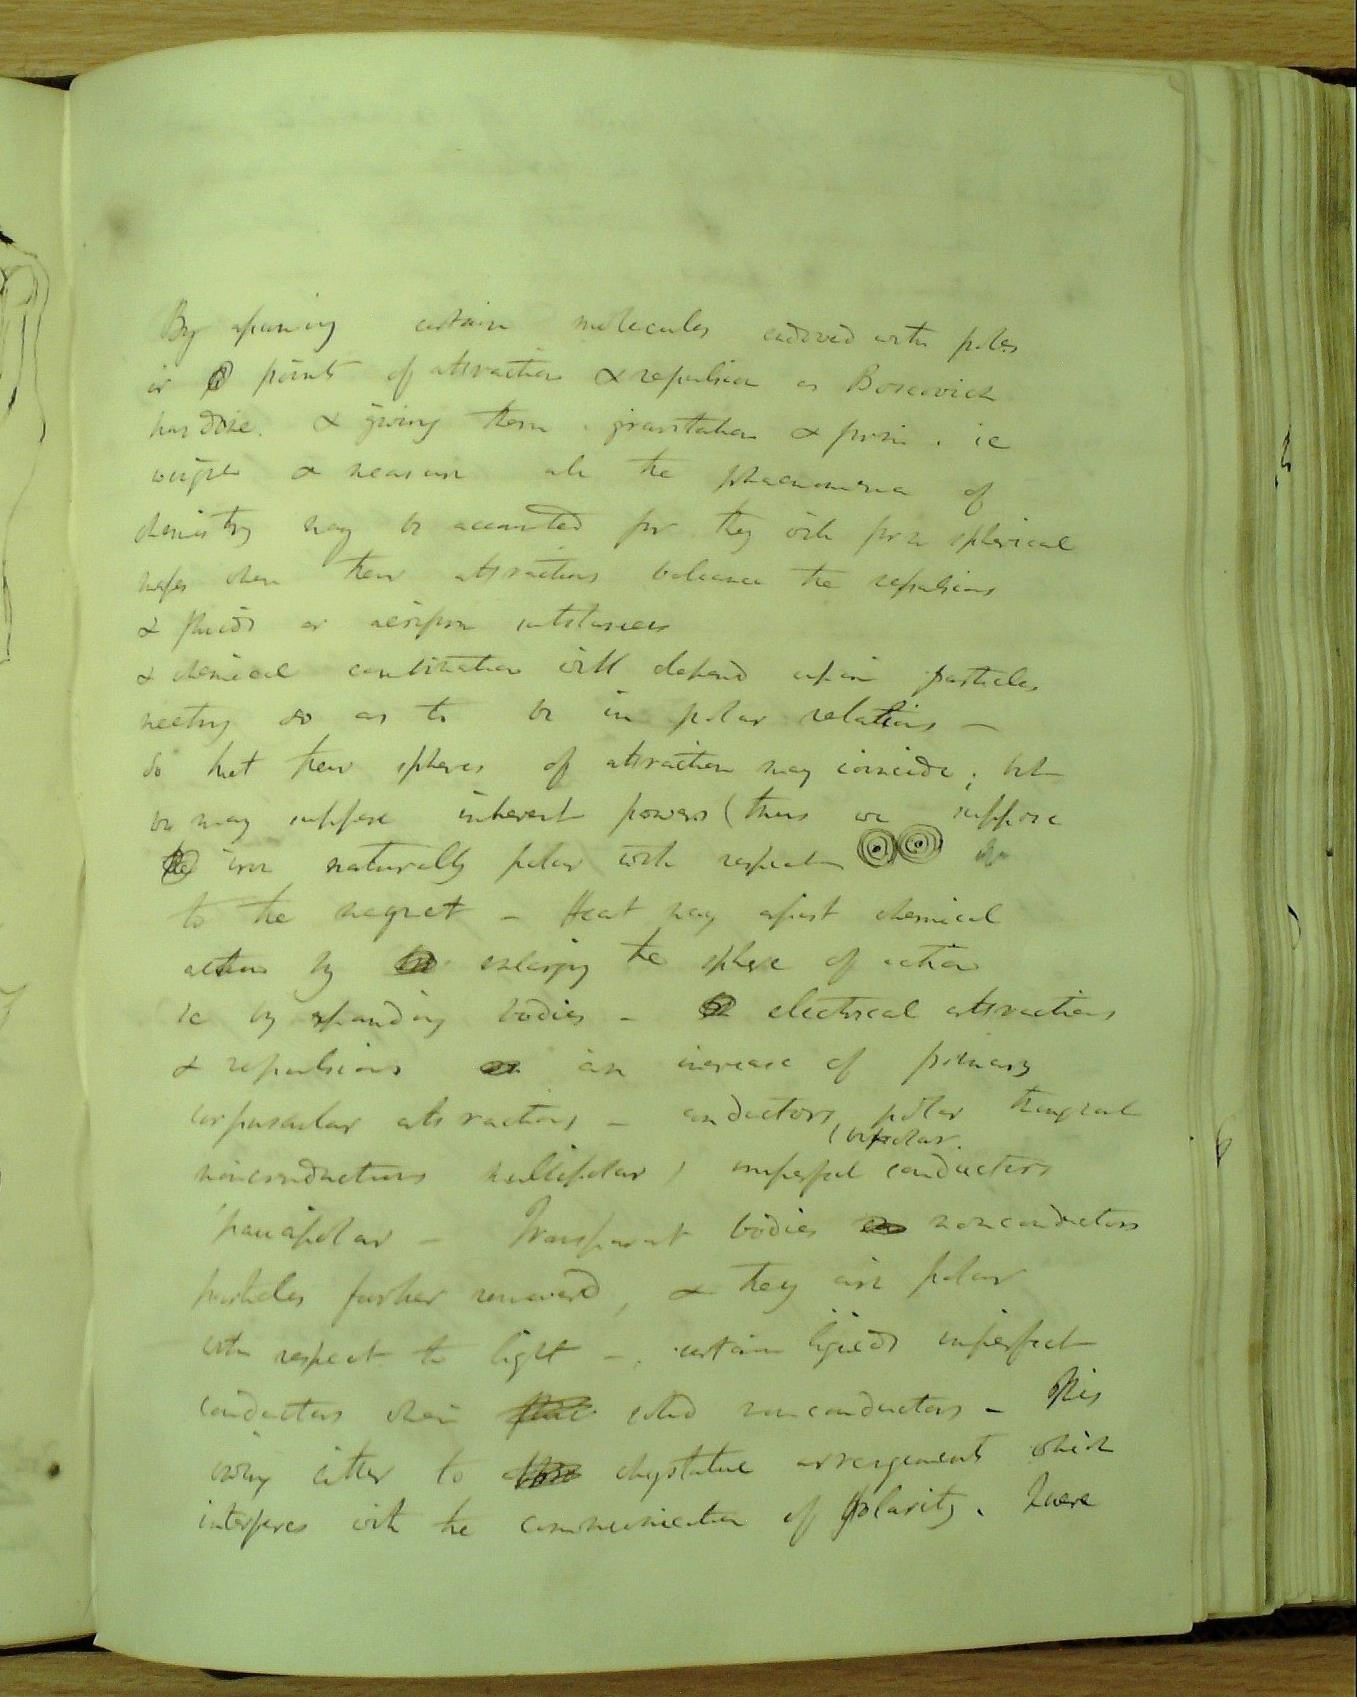 By assuming certain molecules endowed with poles
or points of attraction & repulsion as Boscovich
has done. & giving them gravitation & form. ie
weight & measure all the phaenomena of
chemistry may be accounted for they will form spherical
when their attractions balance the repulsions
& fluids or aeriform substances
& chemical combination will depend upon particles
meeting so as to be in polar relations –
So that their spheres of attraction may coincide; but
we may suppose inherent powers (thus we suppose
iron naturally polar with respect
to the magnet – Heat may assist chemical
action by enlarging the sphere of action
ie by expanding bodies – electrical attractions
& repulsions an increase of primary
corpuscular attractions – conductors, polar
(bipolar.
nonconductors multipolar, imperfect conductors
Transparent bodies nonconductors
particles farther removed, & they are polar
with respect to light –. certain liquids imperfect
conductors when solid nonconductors – This
owing either to chrystalline arrangement which
interferes with the communication of polarity. Where